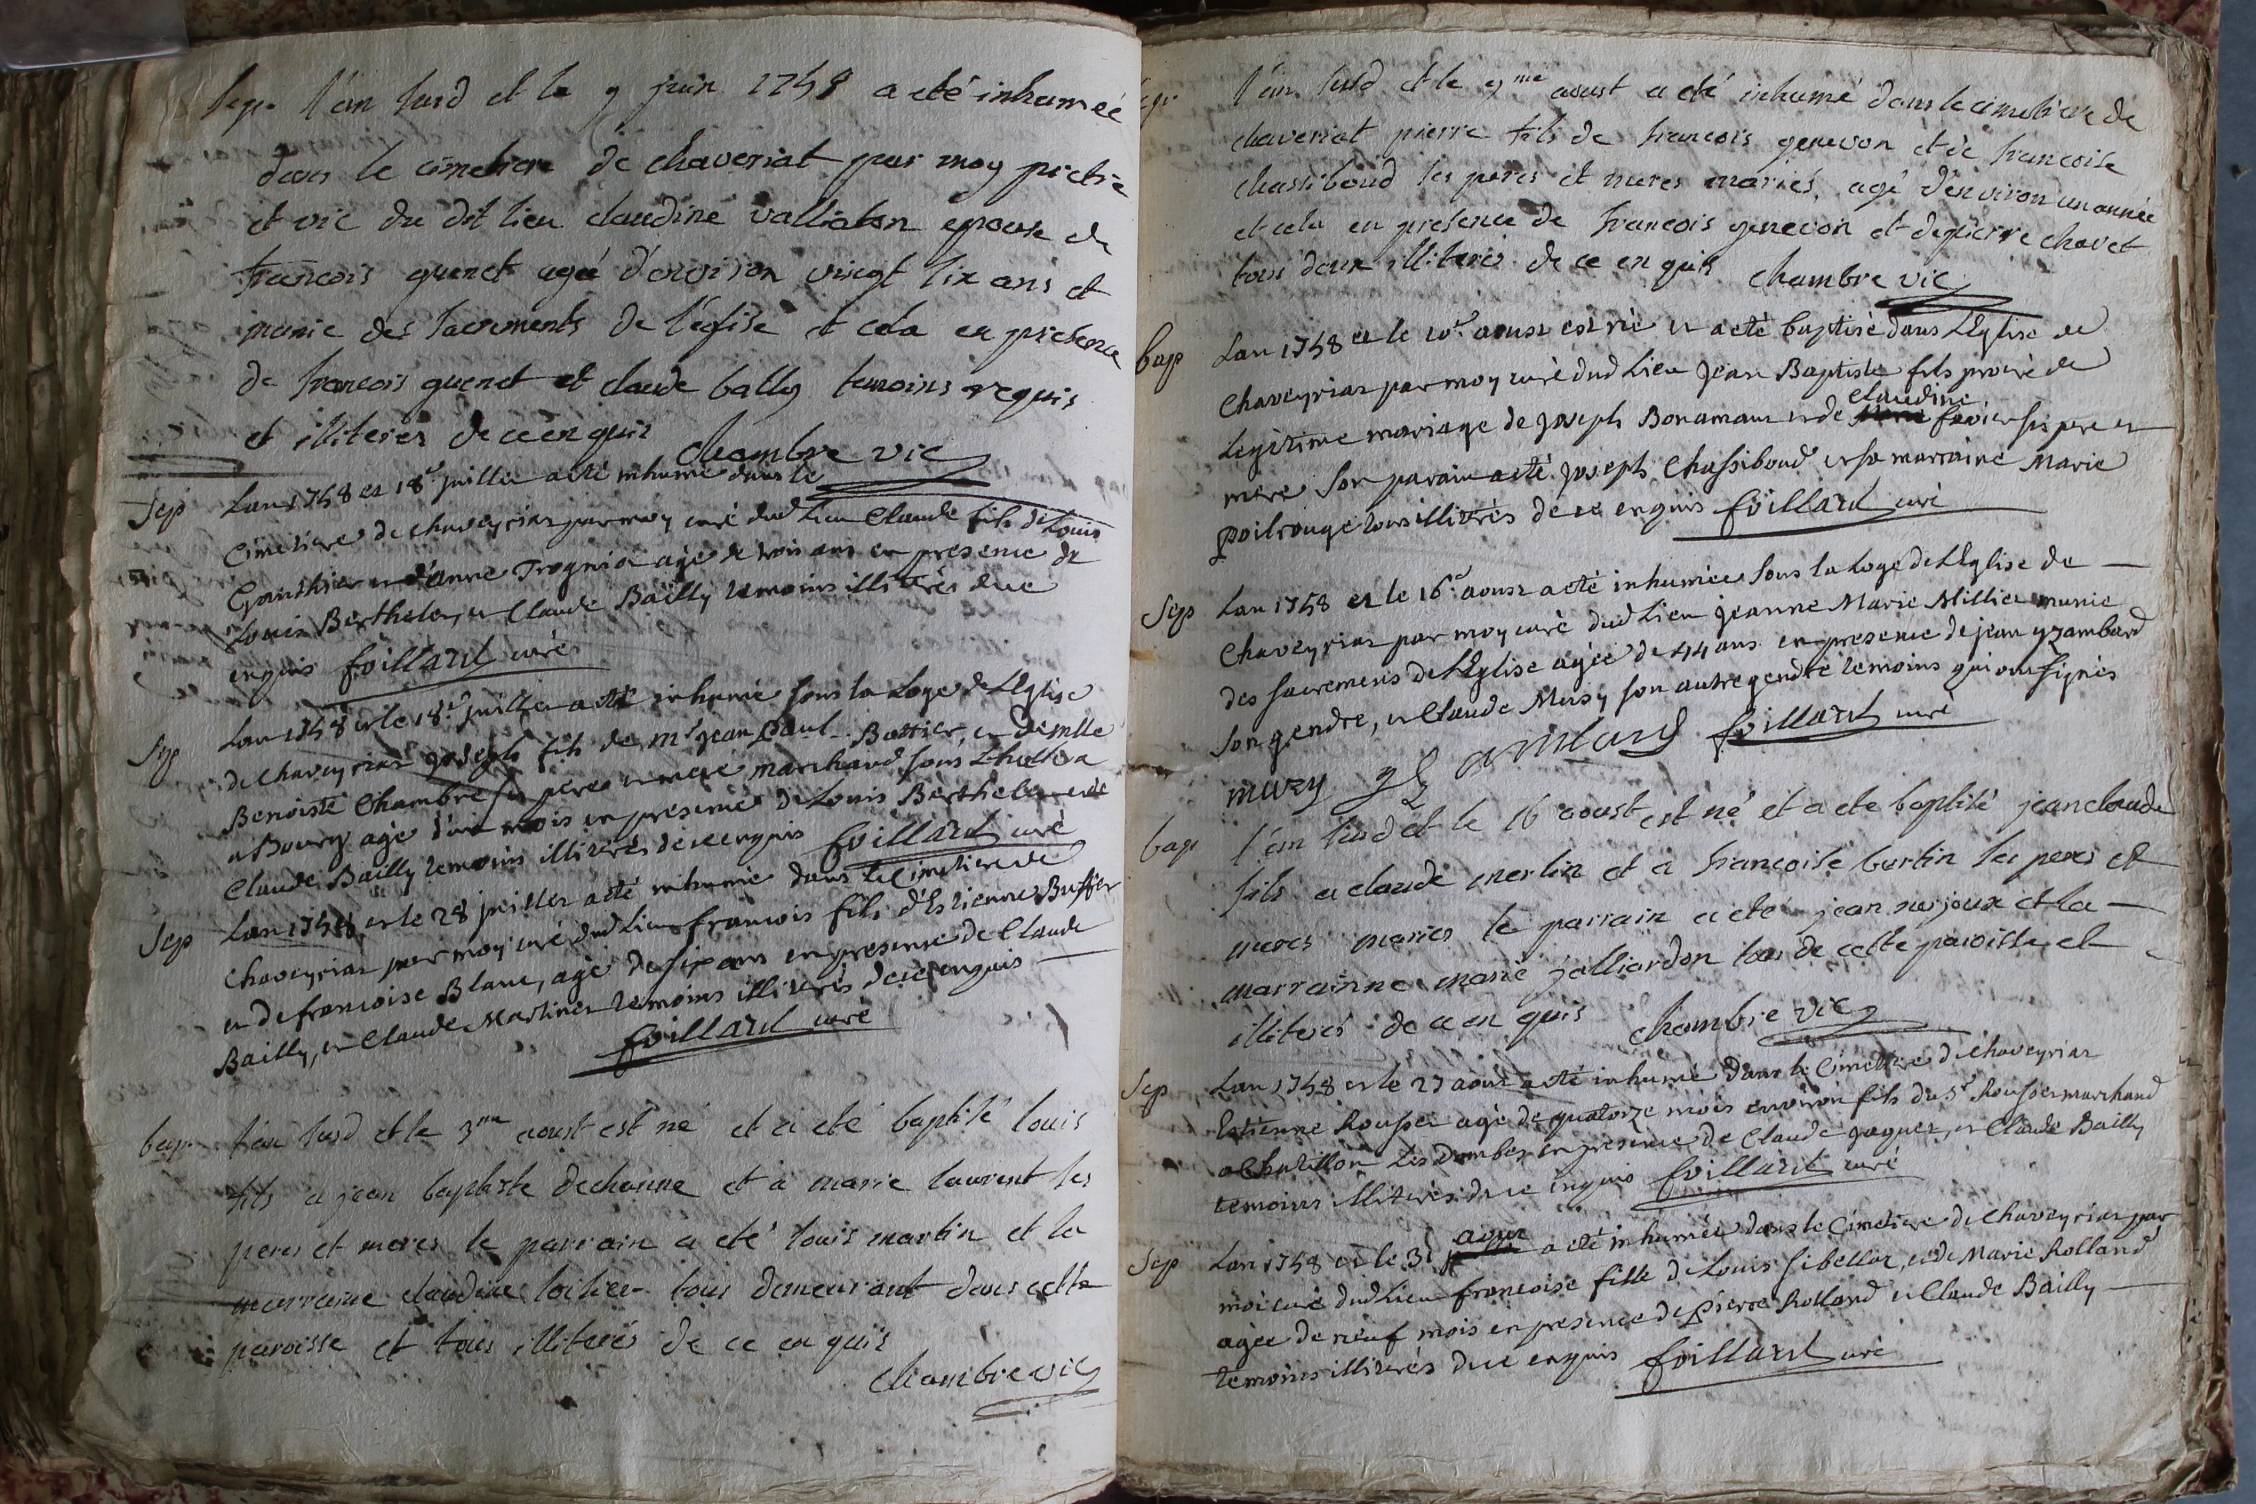 sep. l'an susd et le 9 juin 1758 a eté inhumeé
dans le cimetiere de chaveriat par moy pretre
et vic du dit lieu claudine valliaton epouse de
francois guenet ageé d'environ vingt six ans et
munie des sacrements de l'eglise et cela en presence
de francois guenet et claude bally temoins requis
et illiterés de ce enquis chambre vic
Sep Lan 1758 et 18e juillet a eté inhumé dans le
Cimetiere de chaveyriat par moy curé dud Lieu Claude fils de Louis
Gonthier et d'anne Trognia agé de trois ans en presence de
Louis Berthelet, et Claude Bailly temoins illitérés de ce
enquis foillard curé
Sep Lan 1758 et le 18e juillet a eté inhumé sous la Loge de LEglise
de chaveyriat joseph fils de mr jean Paul Bottier, et Demlle
Benoiste Chambre ses pere et mere marchand sous
a Bourg agé d'un mois en presence de Louis Berthelet et de
Claude Bailly temoins illitérés de ce enquis foillard curé
Sep Lan 1758 et le 28 juillet a eté inhumé dans le Cimetiere de
chaveyriat par moy curé dud Lieu francois fils d'Estienne Buffier
et de francoise Blanc, agé de six ans en presence de Claude
Bailly, et Claude Martinet temoins illitérés de ce enquis
foillard curé
bap. l'an susd et le 3me aoust est né et a eté baptisé louis
fils a jean baptiste dechanne et a marie laurent ses
peres et meres le parrain a eté louis martin et la
marraine claudine tous demeurant dans cette
paroisse et tous illiterés de ce enquis
chambre vic
l'an susd et le 9me aoust a eté inhumé dans le cimetiere de
chaveriat pierre fils de francois genevon et de francoise
chassiboud ses peres et meres mariés, agé d'environ un année
et cela en presence de francois genevon et de pierre chavet
tous deux illiterés de ce enquis chambre vic
bap Lan 1758 et le 10e aoust est né et a eté baptisé dans LEglise de
Chaveyriat par moy curé dud Lieu Jean Baptiste fils procréé de
Legitime mariage de Joseph Bonamour et de claudine favier ses pere et
mere son parain a eté Joseph Chassiboud et sa marraine Marie
Poilrouge tous illitérés de ce enquis foillard curé
Sep Lan 1758 et le 16e aoust a eté inhumée sous la Loge de LEglise de
Chaveyriat par moy curé dud Lieu jeanne Marie Millier munie
des sacrements de LEglise agée de 44 ans en presence de jean yzambard
son gendre, et Claude Mury son autre gendre temoins qui ont signés
mury foillard curé
bap l'an susd et le 16 aoust est né et a eté baptisé jean claude
fils a claude merlin et a francoise bertin ses peres et
meres mariés le parrain a eté jean nerjoux et la
marrainne marie jalliardon tous de cette paroisse et
illiterés de ce enquis chambre vic
Sep Lan 1758 et le 27 aoust a eté inhumé dans le Cimetiere de Chaveyriat
Estienne Rousset agé de quatorze mois environ fils du sr Rousset marchand
a Chatillon Les Dombes en presence de Claude jaquet, et Claude Bailly
temoins illitérés de ce enquis foillard curé
Sep Lan 1758 et le 31 aoust a eté inhumée dans le Cimetiere de Chaveyriat par
moi curé dud Lieu francoise fille de Louis Sibellas, et de Marie Rolland
agée de neuf mois en presence de Pierre Rolland et Claude Bailly
temoins illitérés de ce enquis foillard curé